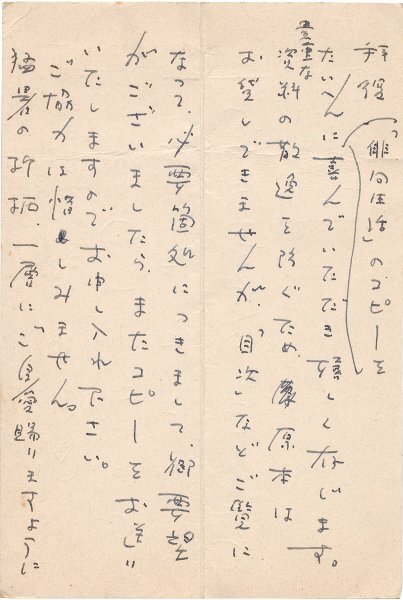 拝復「俳句生活」のコピーを
たいへんに喜んでいただき嬉しく存じます。
貴重な
資料の散逸を防ぐため、原本は
お貸しできませんが、「目次」などご覧に
なって、必要箇処につきまして、御要望
がございましたら、またコピーをお送り
いたしますのでお申し入れ下さい。
ご協力は惜しみません。
猛暑の折柄、一層にご自愛賜りますように